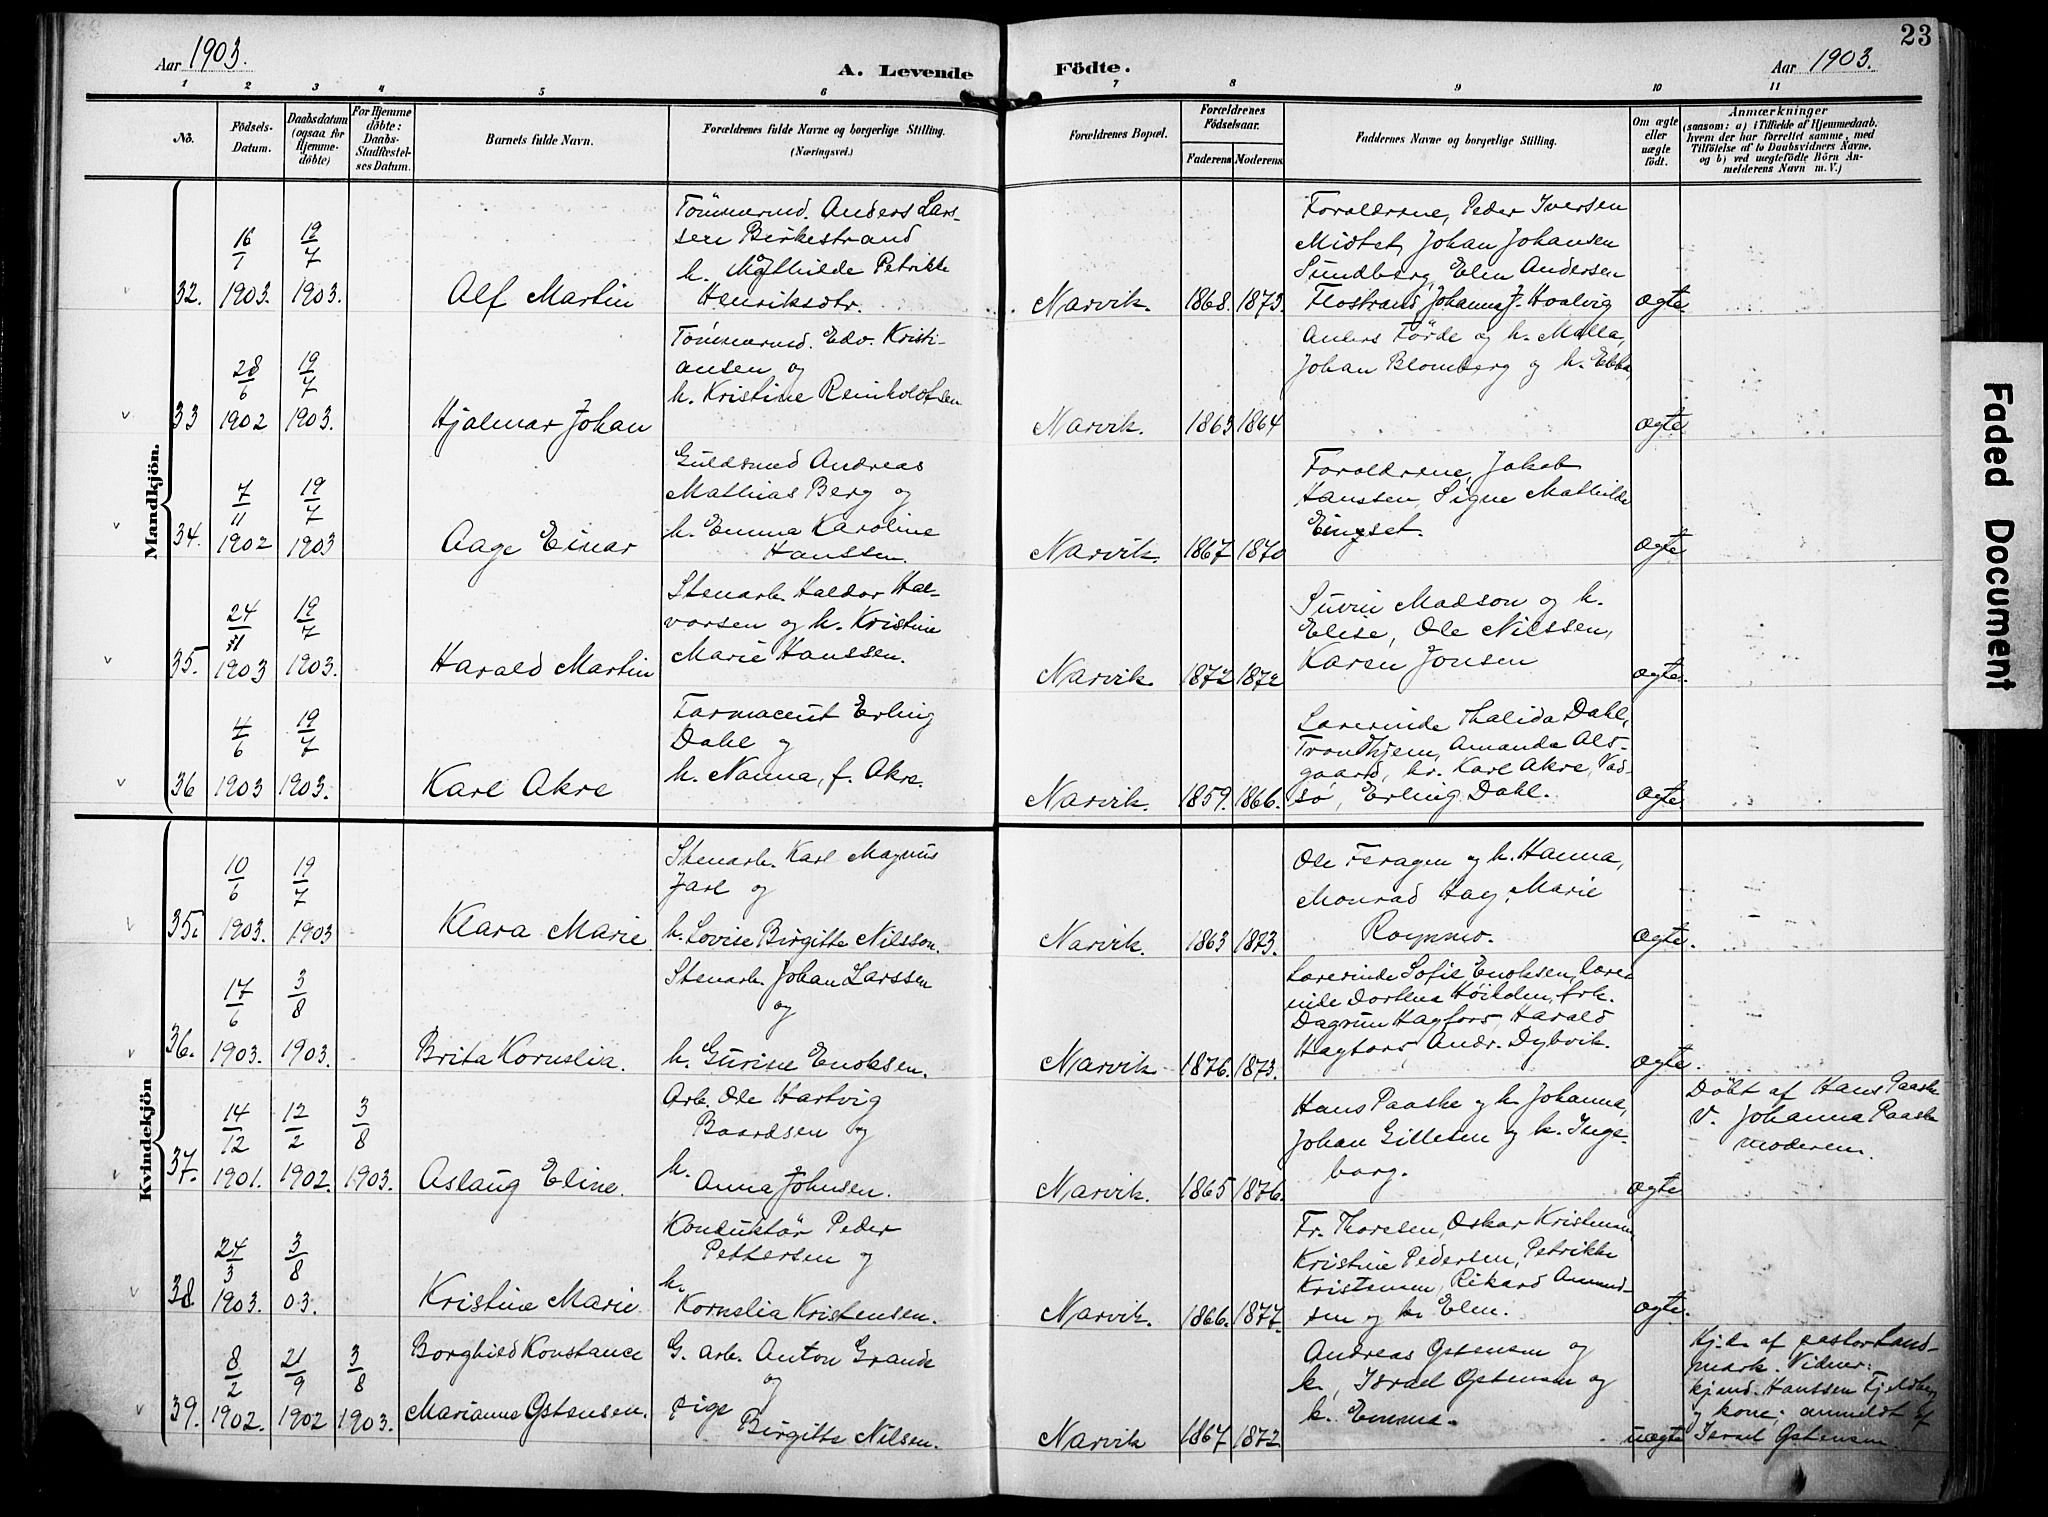 Aar 1903.
A. Levende Födte.
Aar 1903.
23
1 2 3 4 5 6 7 8 9 10 11
No.
Födsels-
Datum.
Daabsdatum
(ogsaa for
Hjemme-
döbte)
For Hjemme
döbte:
Daabs-
Stadfæstel-
ses Datum.
Barnets fulde Navn.
Forældrenes fulde Navne og borgerlige Stilling.
(Næringsvei.)
Forældrenes Bopæl.
Forældrenes
Födselsaar.
Faderens Moderens
Faddernes Navne og borgerlige Stilling.
Om ægte
eller
uægte
födt.
Anmærkninger
(saasom: a) i Tilfælde af Hjemmedaab,
hvem der har forrettet samme, med
Tilföielse af to Daabsvidners Navne,
og b) ved uægtefödte Börn An-
melderens Navn m. V.)
Mandkjön.
32.
16/7 1903.
19/7 1903.
Alf Martin
Tömmermd. Anders Lars-
sen Birkestrand
h. Mathilde Petrikke
Henriksdtr.
Narvik. 1868. 1873.
Foraldrene, Peder Iversen
Midtet, Johan Johansen
Sundberg, Elen Andersen
Flostrand, Johanna J. Hoalvig
ægte
33
28/6 1902
19/7 1903.
Hjalmar Johan
Tömmermd. Edv. Kristi-
ansen og
h. Kristine Reinholdtsen
Narvik. 1863 1864
Anders Förde og h. Malla,
Johan Blomberg og h. Ebba,
ægte
34.
7/11 1902
19/7 1903
Aage Einar
Guldsmed Andreas
Mathias Berg og
h. Emma Karoline
Hanssen.
Narvik. 1867 1870
Foraldrene, Jakob
Hanssen, Signe Mathilde
Eingset.
ægte
35.
24/ 1903
19/7 1903.
Harald Martin
Stenarb. Haldor Hal-
vorsen og h. Kristine
Marie Hanssen.
Narvik. 1872 1872
Madson og h.
Elise, Ole Nilssen,
Karen Jonsen
ægte.
36
4/6 1903
19/7 1903.
Karl Akre
Farmaceut Erling
Dahl og
h. Nanna, f. Akre.
Narvik. 1859. 1866.
Lærerinde Thalida Dahl,
Trondhjem, Amanda Als-
gaard, hr. Karl Akre, Vad-
sö, Erling Dahl.
ægte
Kvindekjön
35.
10/6 1903.
19/7 1903
Klara Marie
Stenarb. Karl Magnus
Jarl og
h. Lovise Birgitte Nilsson.
Narvik. 1863 1873.
Ole Feragen og h. Hanna,
Monrad Hay, Marie
Roynmo.
ægte.
36.
17/6 1903.
3/8 1903.
Brita Kornelia.
Stenarb. Johan Larssen
og
h. Gurine Enoksen.
Narvik 1876. 1873.
Lærerinde Sofie Enoksen, lærer
inde Dorthea Höilden, frk.
Dagrun Hagfors, Harald
Hagfors, Andr. Dybvik.
ægte.
37.
14/12 1901.
12/2 1902.
3/8 1903.
Aslaug Eline.
Arb. Ole Hartvig
Baardsen og
h.
Anna Johnsen.
Narvik. 1865 1876.
Hans Paaske og h. Johanna,
Johan Gillesen og h. Inge-
borg.
ægte
Döbt af Hans Paaske
V. Johanna Paaske
moderen.
38
24/3 1903.
3/8 03.
Kristine Marie
Konduktör Peder
Pettersen og
h.
Kornelia Kristensen.
Narvik. 1866. 1877.
Fr. Thoresen, Oskar Kristensen
Kristine Pedersen, Petrikke
Kristensen, Rikard Amund-
sen og h. Elen.
ægte.
39.
8/2 1902.
21/9 1902
3/8 1903.
Borghild Konstance
Marianne Östensen.
G. arb. Anton Grande
og
pige
Birgitte Nilsen.
Narvik 1867 1872.
Andreas Östensen og
h., Israel Östensen og
h. Emma.
uægte
Hj.d. af pastor Land-
mark. Vidner:
kjend. Hanssen Fjeldberg
og kone; anmeldt af
Israel Östensen.
Faded Document